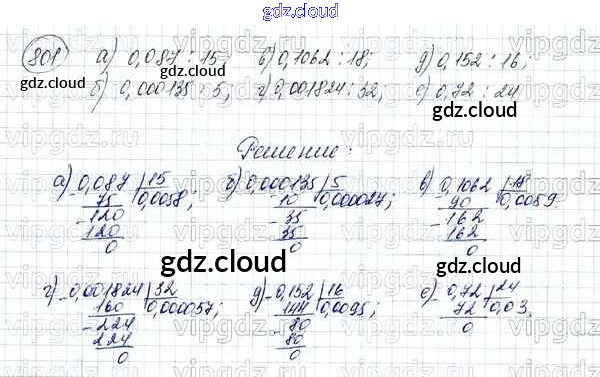 gdz.cloud
801 а) 0,087 : 15; в) 0,1062 : 18; д) 0,152 : 16;
б) 0,000135 : 5; г) 0,001824 : 32; е) 0,72 : 24
gdz.cloud gdz.cloud gdz.cloud
Решение:
а) 0,087 | 15 б) 0,000135 | 5 в) 0,1062 | 18
- 75 0,0058; - 10 0,000027; - 90 0,0059
- 120 - 35 - 162
120 35 162
0 0 0
gdz.cloud
г) 0,001824 | 32 д) 0,152 | 16 е) 0,72 | 24
160 0,000057; 144 0,0095; 72 0,03.
- 224 - 80 0
224 80
0 0
gdz.cloud gdz.cloud